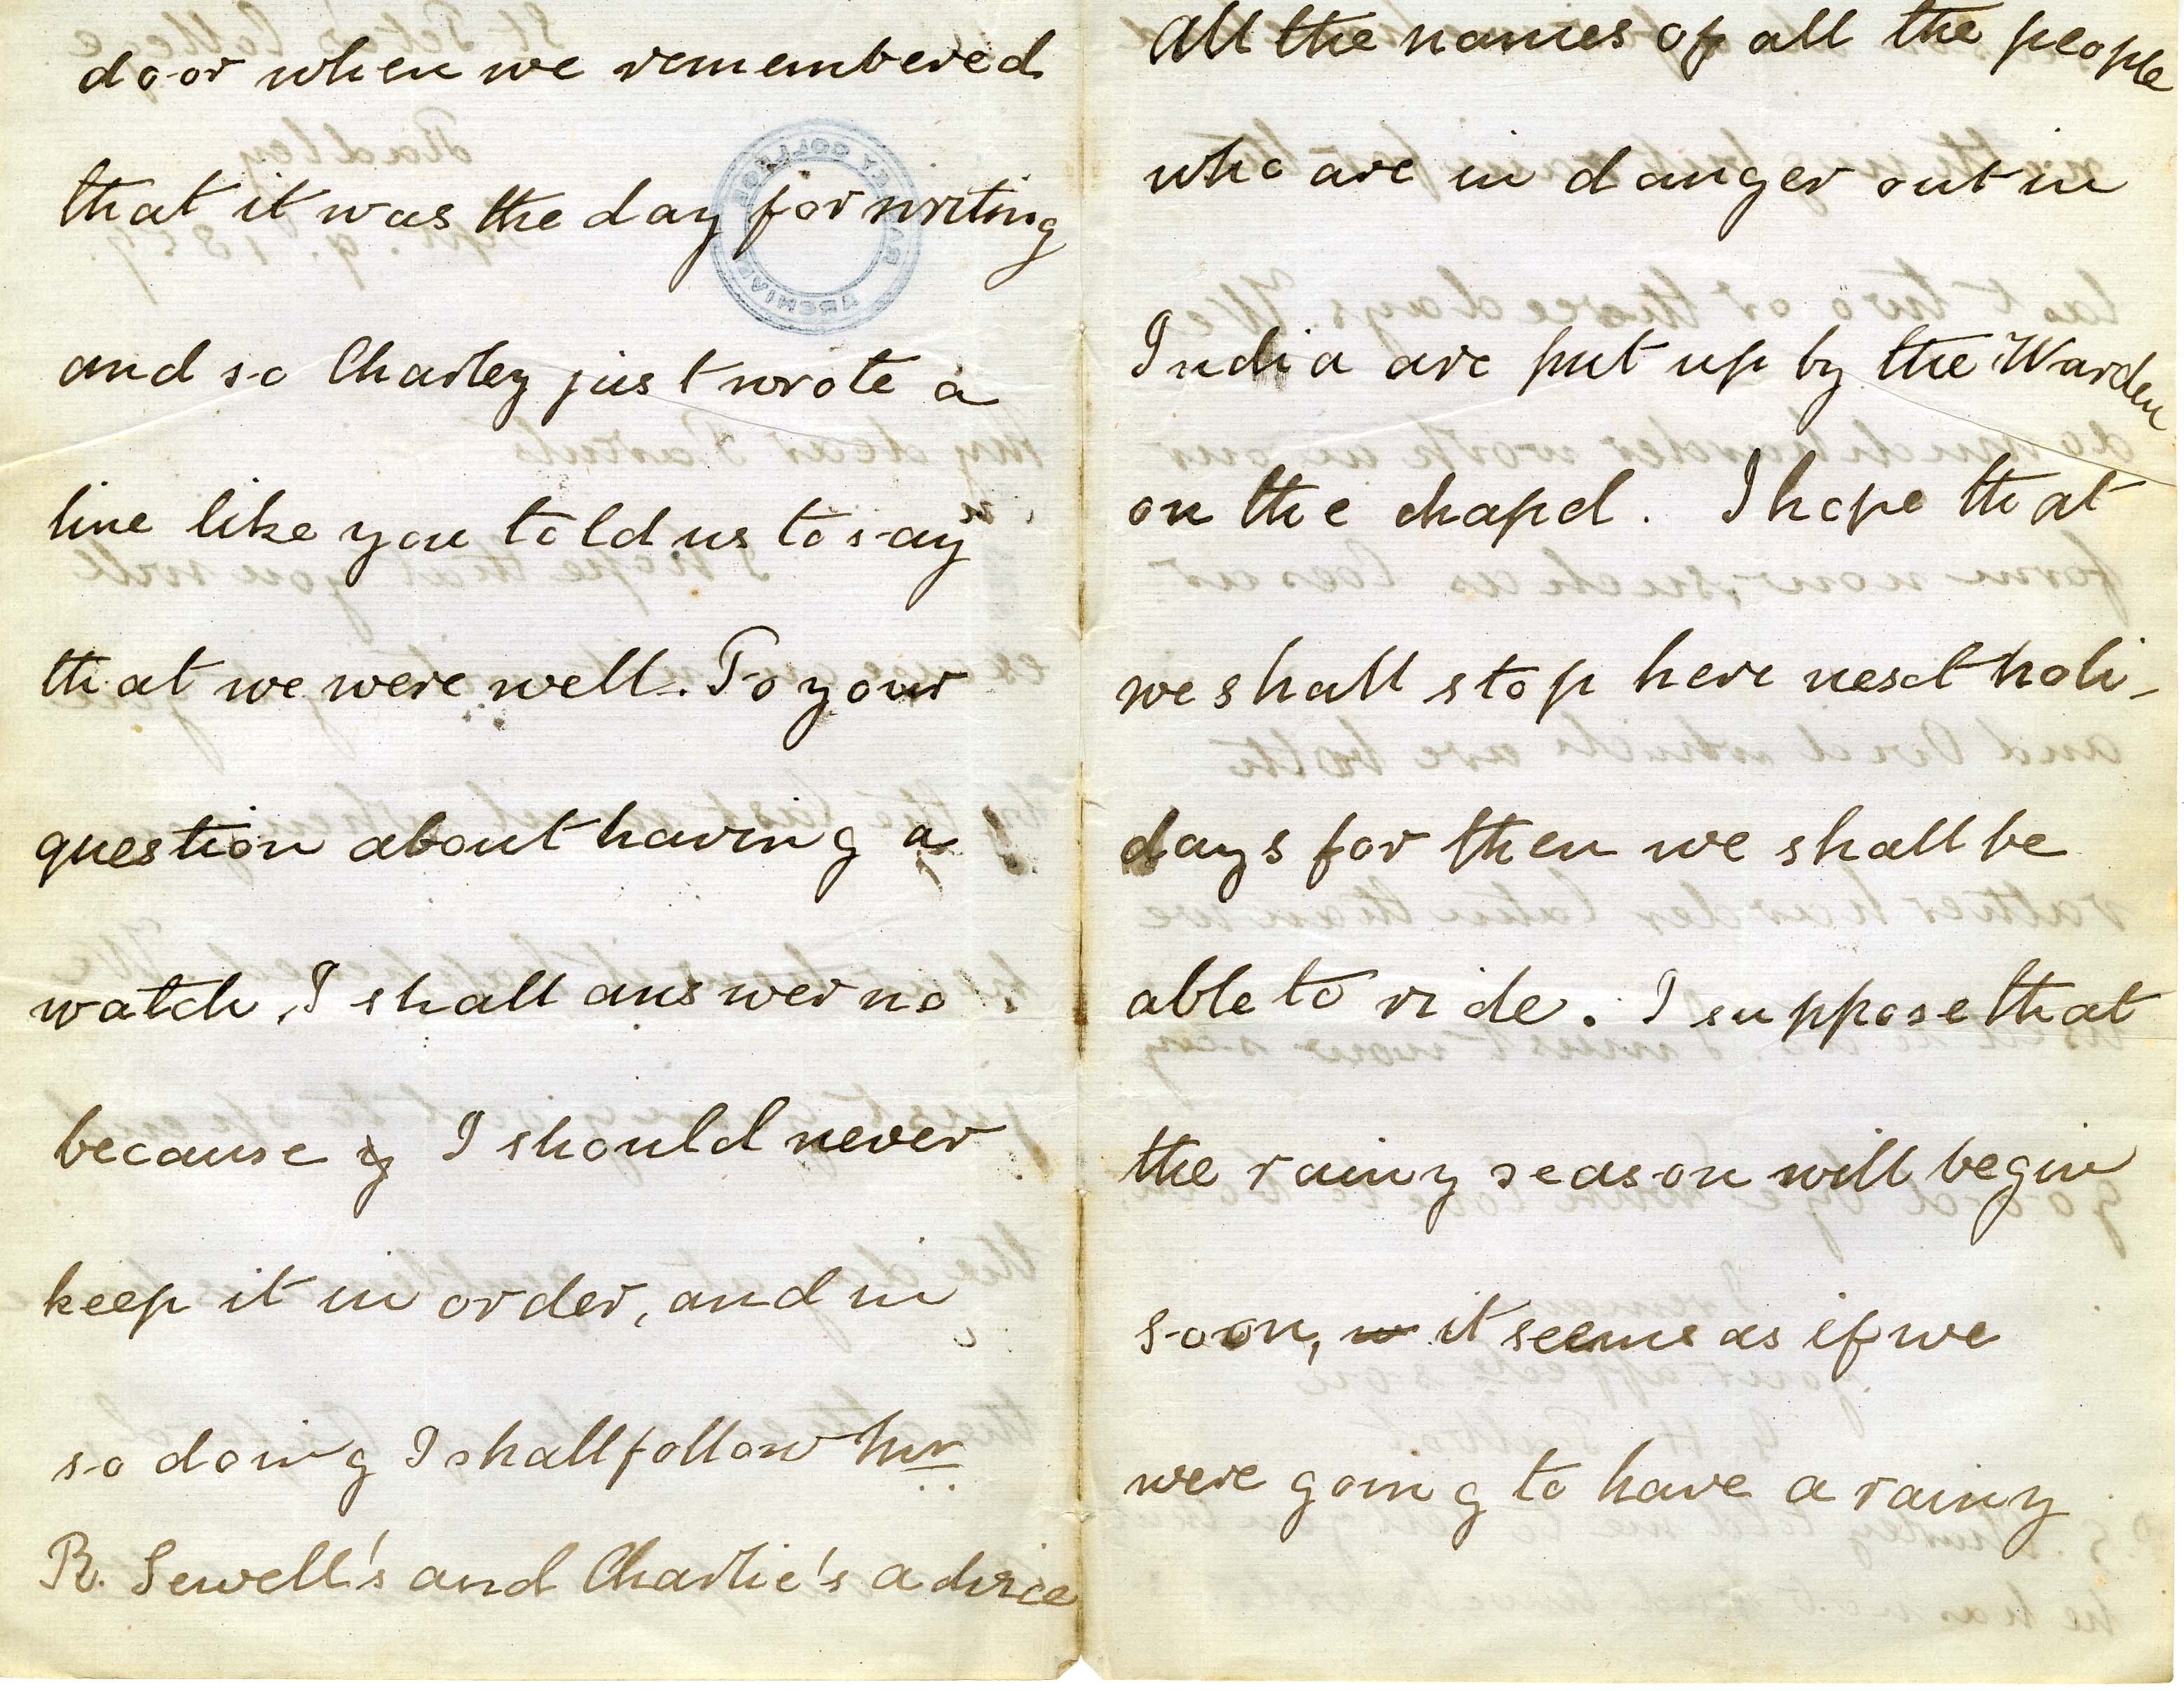 door when we remembered
that it was the day for writing
and so Charley just wrote a
line like you told us to say
that we were well. To your
question about having a
watch, I shall answer no
because I should never
keep it in order, and in
so doing I shall follow Mr
R. Sewell's and Charlie's advice
All the names of all the people
who are in danger out in
India are put up by the Warden
on the chapel. I hope that
we shall stop here next holi-
days for then we shall be
able to ride. I suppose that
the rainy season will begin
soon, it seems as if we
were going to have a rainy